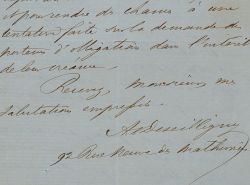 de chance à une
tentative faite sur la demande de
porteurs d'obligations dans l'intérêt
de leur créance.
Recevez, Monsieur, mes
salutations empressées.
92 Rue Neuve des Mathurins